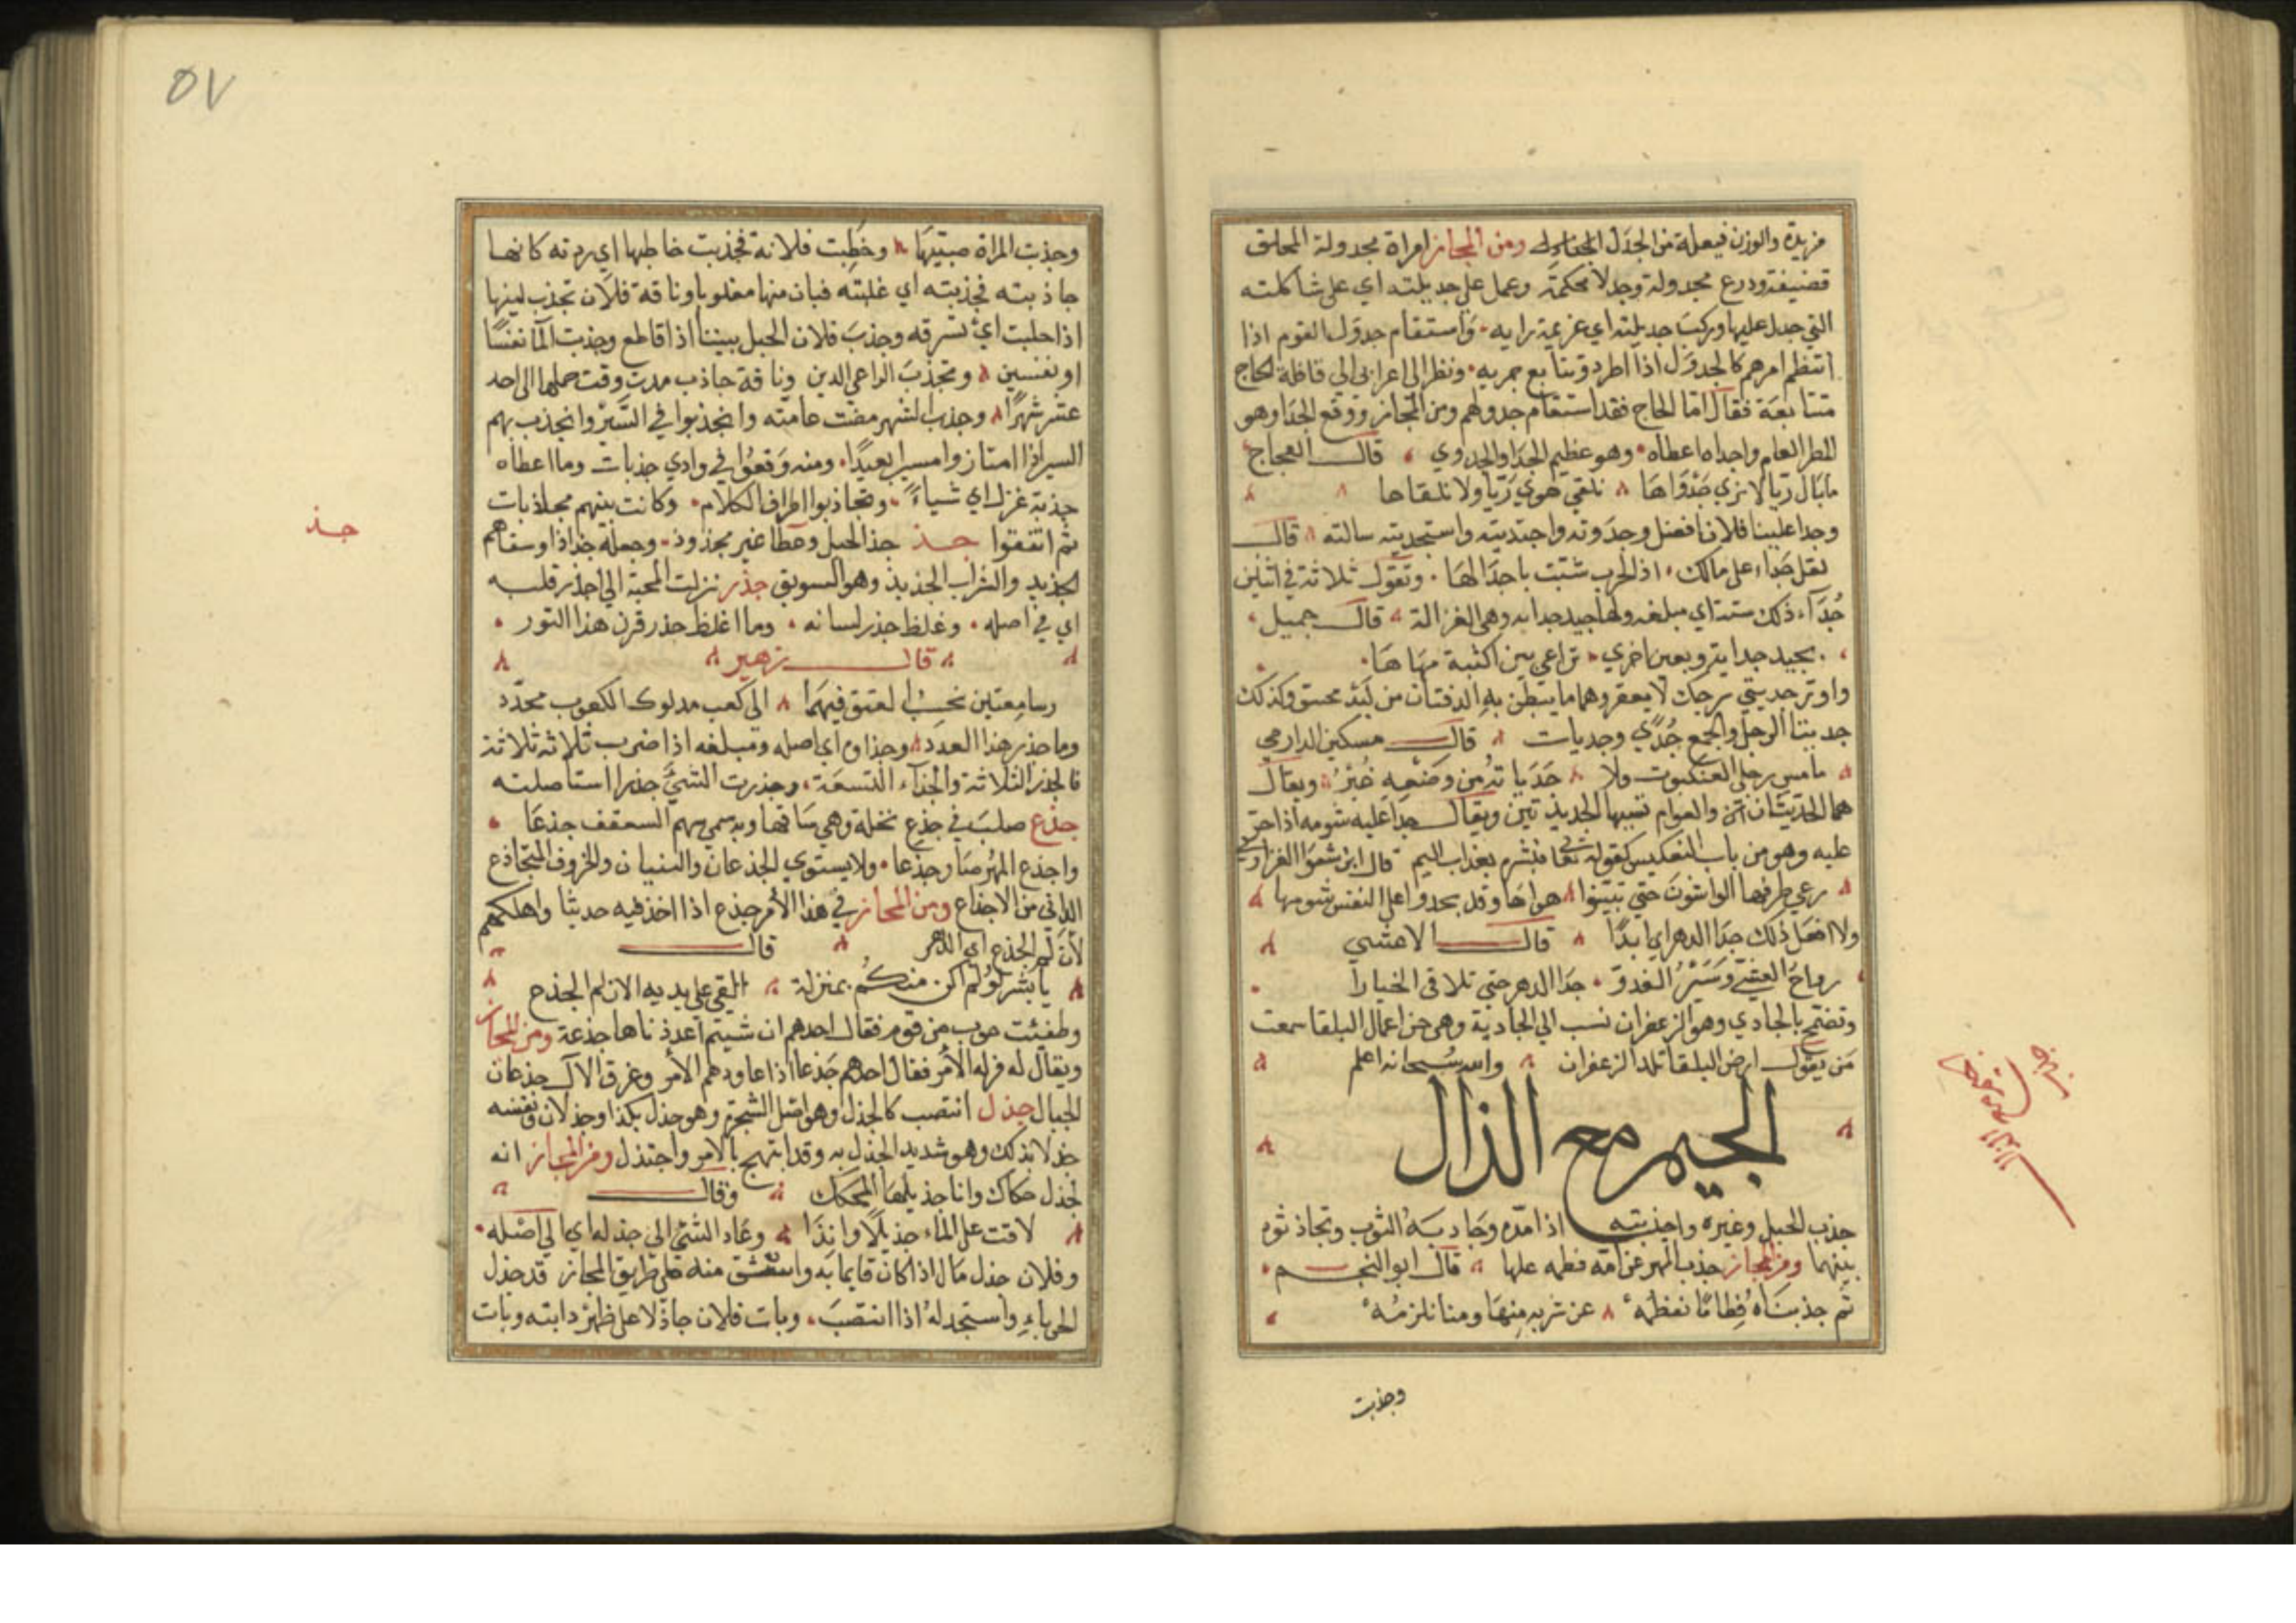 مزيدة والوزن فيعلة من الجدل ومن المجاز امراة مجدولة الخلق
قضيفة ودرع مجدولة وجدلا محكمة وعمل علي جديلته اي علي شاكلته
التي جدل عليها وركب جديلته اي عزيمة رايه وَاستقام جدول القوم اذا
انتظم امرهم كالجدول اذا اطرد وتتابع جريه ونظر اعرابي الي قافلة الحاج
متتابعة فقال اما الحاج فقد استقام جدولهم ومن المجاز ووقع الجدا وهو
المطر العام واجداه اعطاه وهو عظيم الجدا والجدوي قال العجاج
ما بال ريا لا نري جدواها نلقي هوي ريا ولا نلقاها
وجدا علينا فلان افضل وجدوته واجتديته واستجديته سالته قال
اذ الحرب شبت باجدالها وتقول ثلاثة في اثنين
جُدآء ذلك ستة اي مبلغه ولها جيد جدايه وهي الغزالة قال جميل
بجيد جداية وبعين اخري تراعي بين اكثبة مهاها
جديتي سرجك لا يعقر وهما ما يبطن به الدفتان من لبد محشو وكذلك
جديتا الرحل والجمع جُدًي وجديات قال مسكين الدارمي
ويقال
والعوام تسميها الجديدتين ويقال جدا عليه شومه اذا جر
عليه وهو من باب التعكيس كقوله تعا فبشرهم بعذاب اليم قال ابن شعوا الفزاري
رعي طرفها الواشون حتي تبينوا هواها وقد يجدوا علي النفس شومها
ولا افعل ذلك جدا الدهر اي ابدًا قال الاعشي
رواحُ العشيّ وسَيْرُ الغدوّ جدا الدهر حتي تلاقي الخيارا
وتضمخ بالجادي وهو الزعفران نسب الي الجادية وهي من اعمال البلقا سمعت
مَن يقول ارض البلقا تلد الزعفران والله سُبحانه اعلم
الجيم مع الذال
جذب الحبل وغيره واجتذبته اذا مدّه وجاذبَهُ الثوب وتجاذبوه
بينهما ومن المجاز جذب المهر عن امّه فطمه عليها قال ابو النجم
ثم جذبنَاهُ فِطامًا نفطمه عن شربه مِنهَا ومنا نلزمُهُ
وجذبت
٥٧
وجذبت المراة صبيّهَا وخطبت فلانة فجذبت خاطبها اي ردته كانها
جاذبته فجذبته اي غلبته فبان منها مغلوبا وناقة فلان تجذب لبنها
اذا حلبت اي تسرقه وجذبَ فلان الحبل بيننا اذا قاطع وجذبت الما نفسًا
او نفسين وتجذبَ الراعي اللبن وناقة جاذب مدت وقت حملها الي احد
عشر شهرًا وجذب الشهر مضت عامته وانجذبوا في السَّيْر وانجذب بهم
السير اذا امتاز وامسيرا بعيدًا ومنه وَقعوُا في وادي جذبات وما اعطاه
جذبة غزل اي شياءً وتجاذبوا اطراف الكلام وكانت بينهم مجاذبات
ثم اتفقوا جـذ جذ الحبل وعطا غير مجذوذ وجعله جذاذا وسقاهم
الجذيذ والشراب الجذيذ وهو السويق جذر نزلت المحبة الي جذر قلبه
اي في اصله وغلظ جذر لسانه وما اغلظ جذر قرن هذا الثور
قال زهير
وسامعتين تحسبُ العتق فيهما الي كعب مدلوك الكعوب محدّد
وما جذر هذا العدد وجذاوه اي اصله ومبلغه اذا ضرب ثلاثة ثلاثة
فالجذر الثلاثة والجذآء التسعة وجذرت الشيءَ جذرا استاصلته
جذع صلبَ في جذع نخلة وهي سَاقها وبه سمي سهم السقف جذعًا
واجذع المُهر صار جذعا ولا يستوي الجذعان والثنيان والخروف المتجاذع
الداني من الاجذاع ومن المجاز في هذا الأمر جذع اذا اخذ فيه حديثا واهلكهم
لأن لم الجذع اي الدهر قال
يا بشر لو لم اكن منكم بمنزلة القي علي يديه الازلم الجذع
وطفئت حرب بين قوم فقال احدهم ان شيتم اعدناها جذعة ومن المجاز
الأمر وعرق الال جذعان
الجبال جذل انتصب كالجذل وهو اصل الشجرة وهو جذل بكذا وجذلان ونفسه
جذلا بذلك وهو شديد الجذل به وقد ابتهج بالامر واجتذل ومن المجاز انه
لجذل حكاك وانا جذيلها المحكك وقال
لاقت علي الماء جذيلًا وانِدًا وعَاد الشيئ الي جذله اي الي اصله
وفلان جذل مَال اذا كان قايما به علي طريق المجاز قد جذل
الحرباءِ واستجذلهُ اذا انتصبَ وبات فلان جاذلا علي ظهر دابته وبات
جـذ